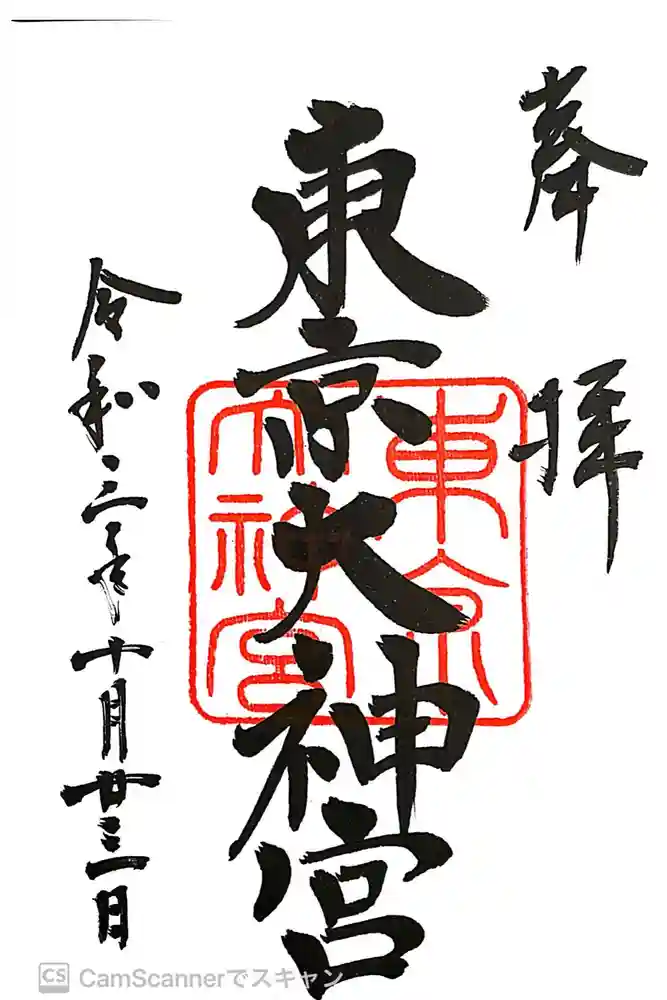 奉拝
東京大神宮
東京大神宮
令和三年十月廿三日
CS CamScannerでスキャン